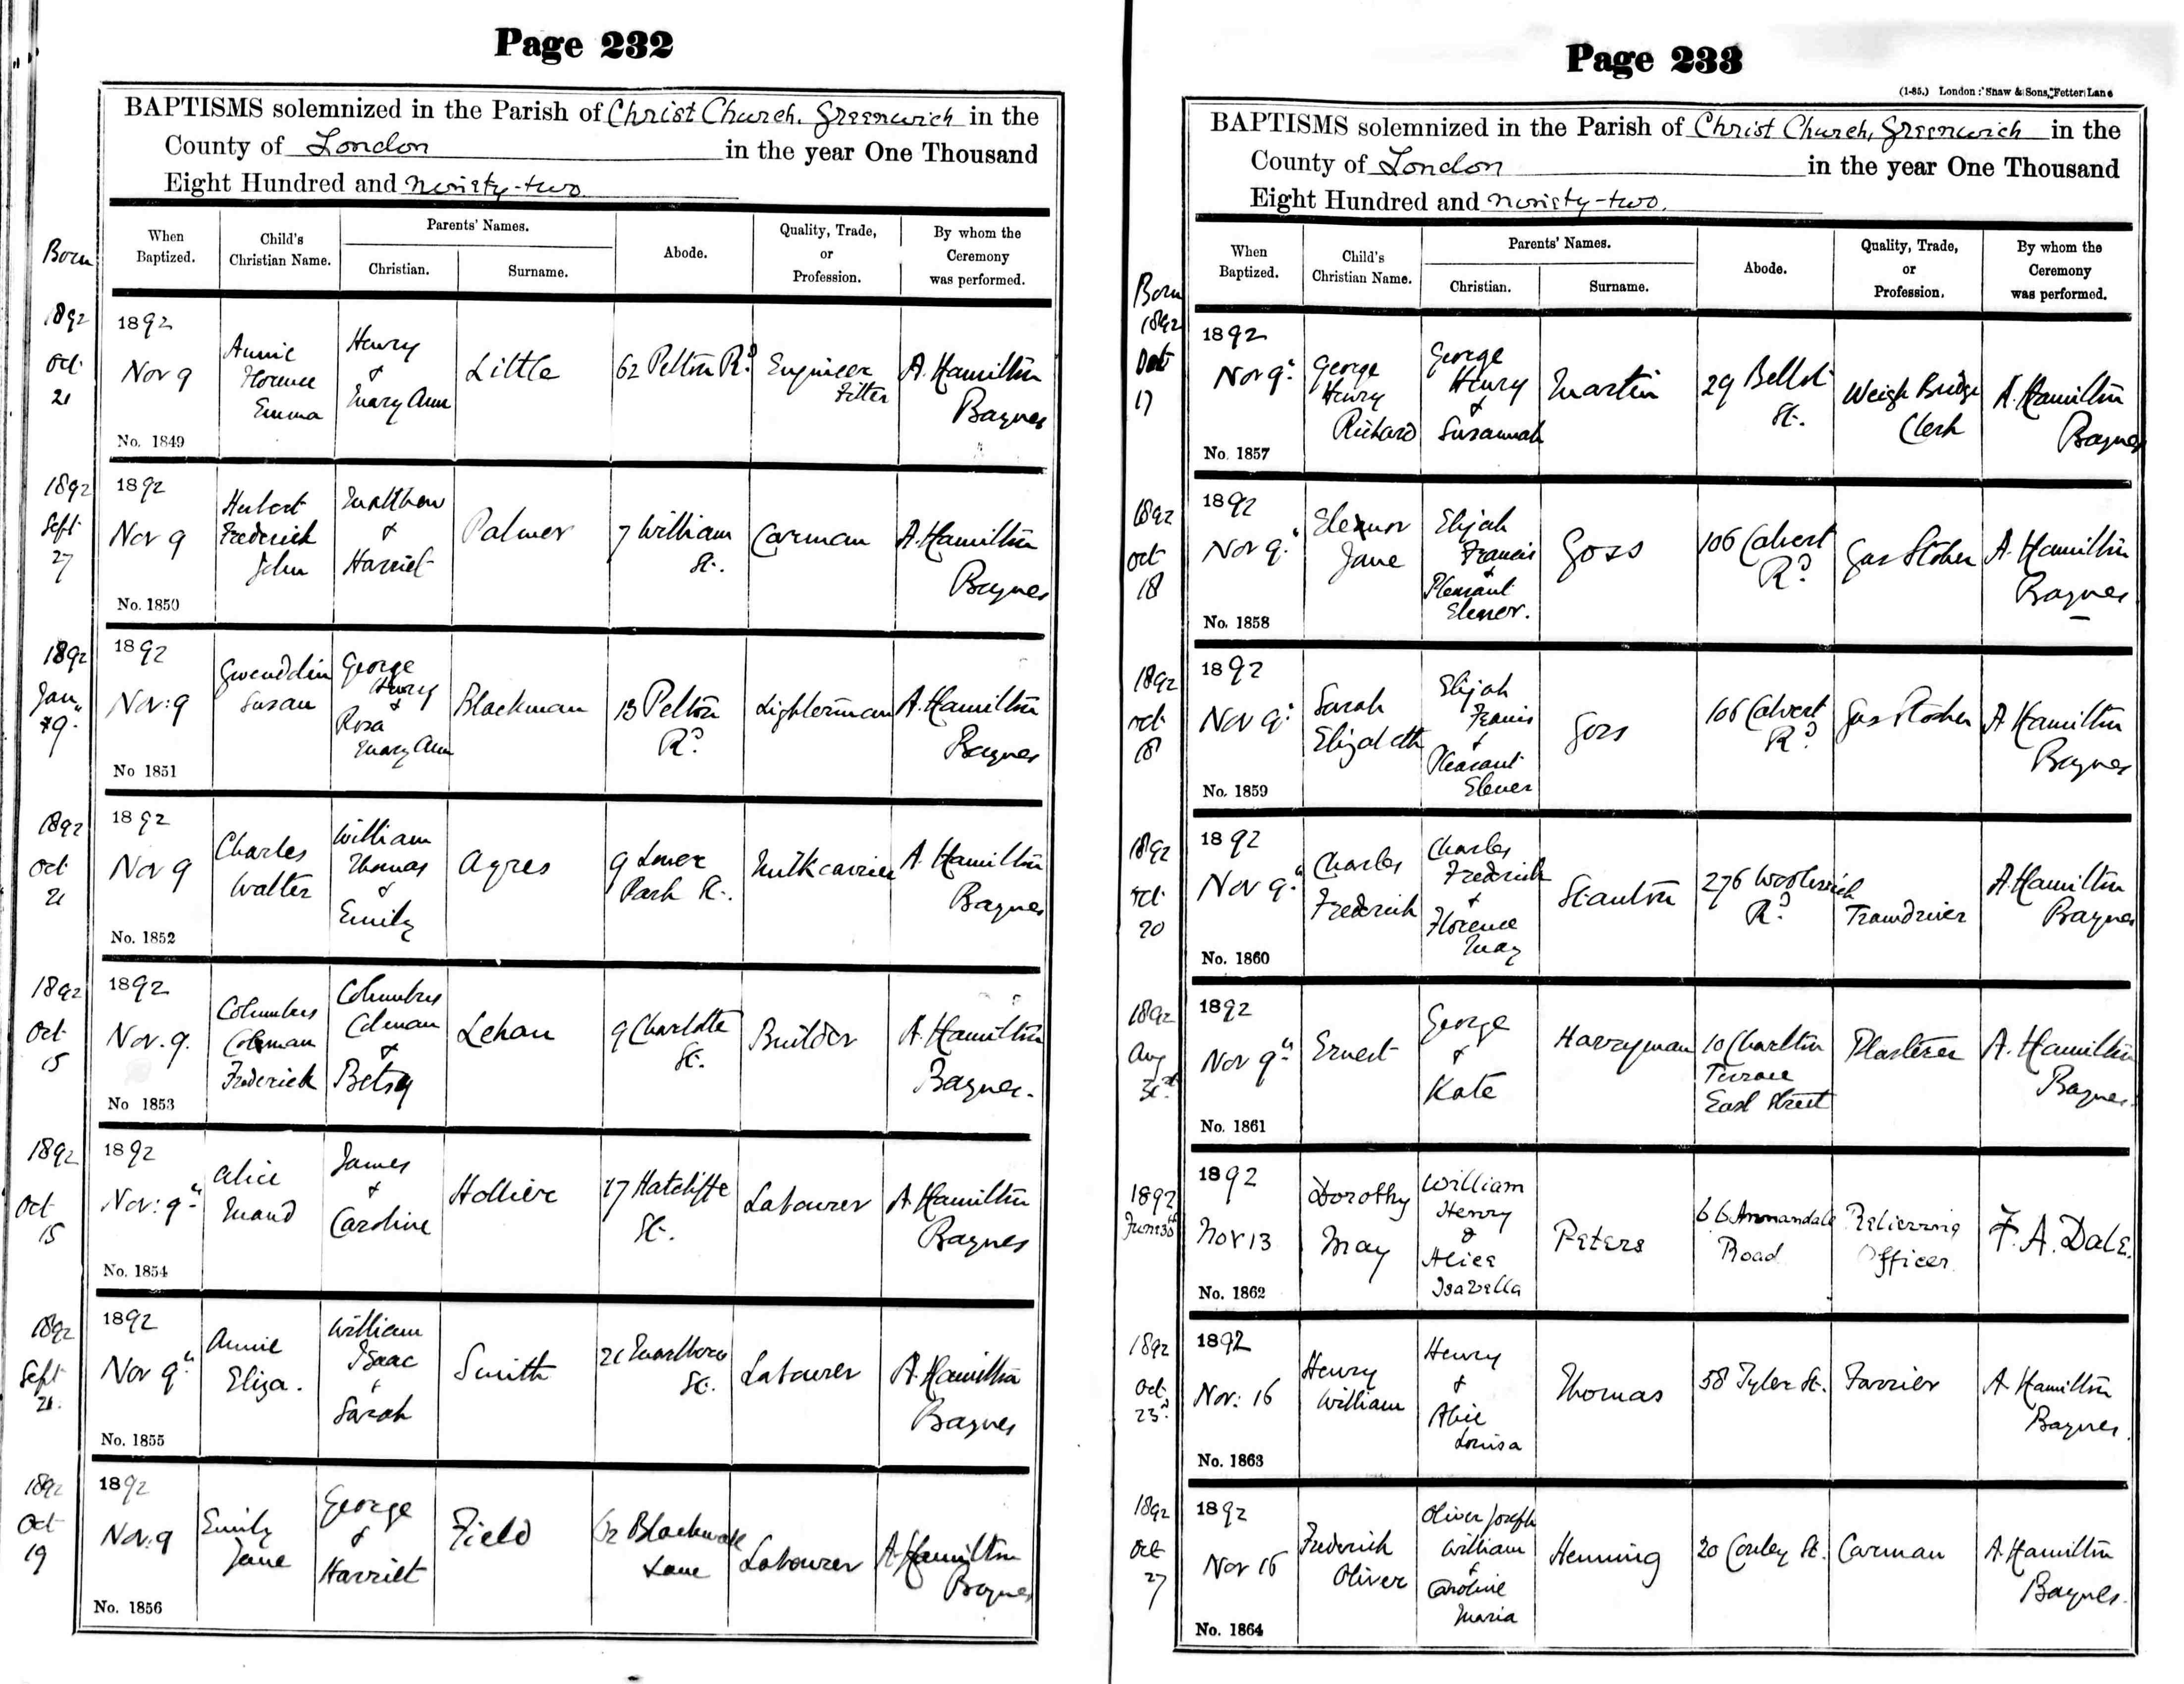 Page 232
BAPTISMS solemnized in the Parish of Christ Church, Greenwich in the
County of London in the year One Thousand
Eight Hundred and ninety-two
Born
When Baptized.
Child's Christian Name.
Parents' Names.
Christian.
Surname.
Abode.
Quality, Trade, or Profession.
By whom the Ceremony was performed.
1892 Oct 21
1892 Nov 9
No. 1849
Annie Florence Emma
Henry & Mary Ann
Little
62 Pelton Rd
Engineer Fitter
A. Hamilton Baynes
1892 Sept 27
1892 Nov 9
No. 1850
Herbert Frederick John
Matthew & Harriet
Palmer
7 William St.
Carman
A. Hamilton Baynes
1892 Jan 
1892 Nov: 9
No 1851
Gwenddlin Susan
George Henry & Rosa Mary Ann
Blackman
13 Pelton Rd
Lighterman
A. Hamilton Baynes
1892 Oct 21
1892 Nov 9
No. 1852
Charles Walter
William Thomas & Emily
Ayres
9 Lower Park St.
Milkcarrier
A. Hamilton Baynes
1892 Oct 15
1892 Nov. 9.
No 1853
Columbus Coleman Frederick
Columbus Colman & Betsy
Lehan
9 Charlotte St.
Builder
A. Hamilton Baynes.
1892 Oct 15
1892 Nov: 9th
No. 1854
Alice Maud
James & Caroline
Hollier
17 Hatcliffe St.
Labourer
A. Hamilton Baynes
1892 Sept 21.
1892 Nov 9th
No. 1855
Annie Eliza.
William Isaac & Sarah
Smith
21 Marlboro St.
Labourer
A. Hamilton Baynes
1892 Oct 19
1892 Nov. 9
No. 1856
Emily Jane
George & Harriet
Field
62 Blackwall Lane
Labourer
A. Hamilton Baynes
Page 233
(1-85.) London: Shaw & Sons, Fetter Lane
BAPTISMS solemnized in the Parish of Christ Church, Greenwich in the
County of London in the year One Thousand
Eight Hundred and ninety-two.
Born
When Baptized.
Child's Christian Name.
Parents' Names.
Christian.
Surname.
Abode.
Quality, Trade, or Profession.
By whom the Ceremony was performed.
1892 Oct 17
1892 Nov 9th
No. 1857
George Henry Richard
George Henry & Susannah
Martin
29 Bellot St.
Weigh Bridge Clerk
A. Hamilton Baynes
1892 Oct 18
1892 Nov 9th
No. 1858
Eleanor Jane
Elijah Francis & Pleasant Elenor.
Goss
106 Calvert Rd
Gas Stoker
A. Hamilton Baynes
1892 Oct 18
1892 Nov 9th
No. 1859
Sarah Elizabeth
Elijah Francis & Pleasant Elener
Goss
106 Calvert Rd
Gas Stoker
A Hamilton Baynes
1892 Oct 20
1892 Nov 9th
No. 1860
Charles Frederick
Charles Frederick & Florence May
Stanton
276 Woolwich Rd
Tramdriver
A. Hamilton Baynes
1892 Aug 31st
1892 Nov 9th
No. 1861
Ernest
George & Kate
Harryman
10 Charlton Terrace East Street
Plasterer
A. Hamilton Baynes.
1892 June 30th
1892 Nov 13
No. 1862
Dorothy May
William Henry & Alice Isabella
Peters
66 Annandale Road
Relieving Officer
F. A. Dale.
1892 Oct. 23rd
1892 Nov: 16
No. 1863
Henry William
Henry & Alice Louisa
Thomas
58 Tyler St.
Farrier
A Hamilton Baynes.
1892 Oct 27
1892 Nov 16
No. 1864
Frederick Oliver
Oliver Joseph William & Caroline Maria
Henning
20 Conley St.
Carman
A. Hamilton Baynes.